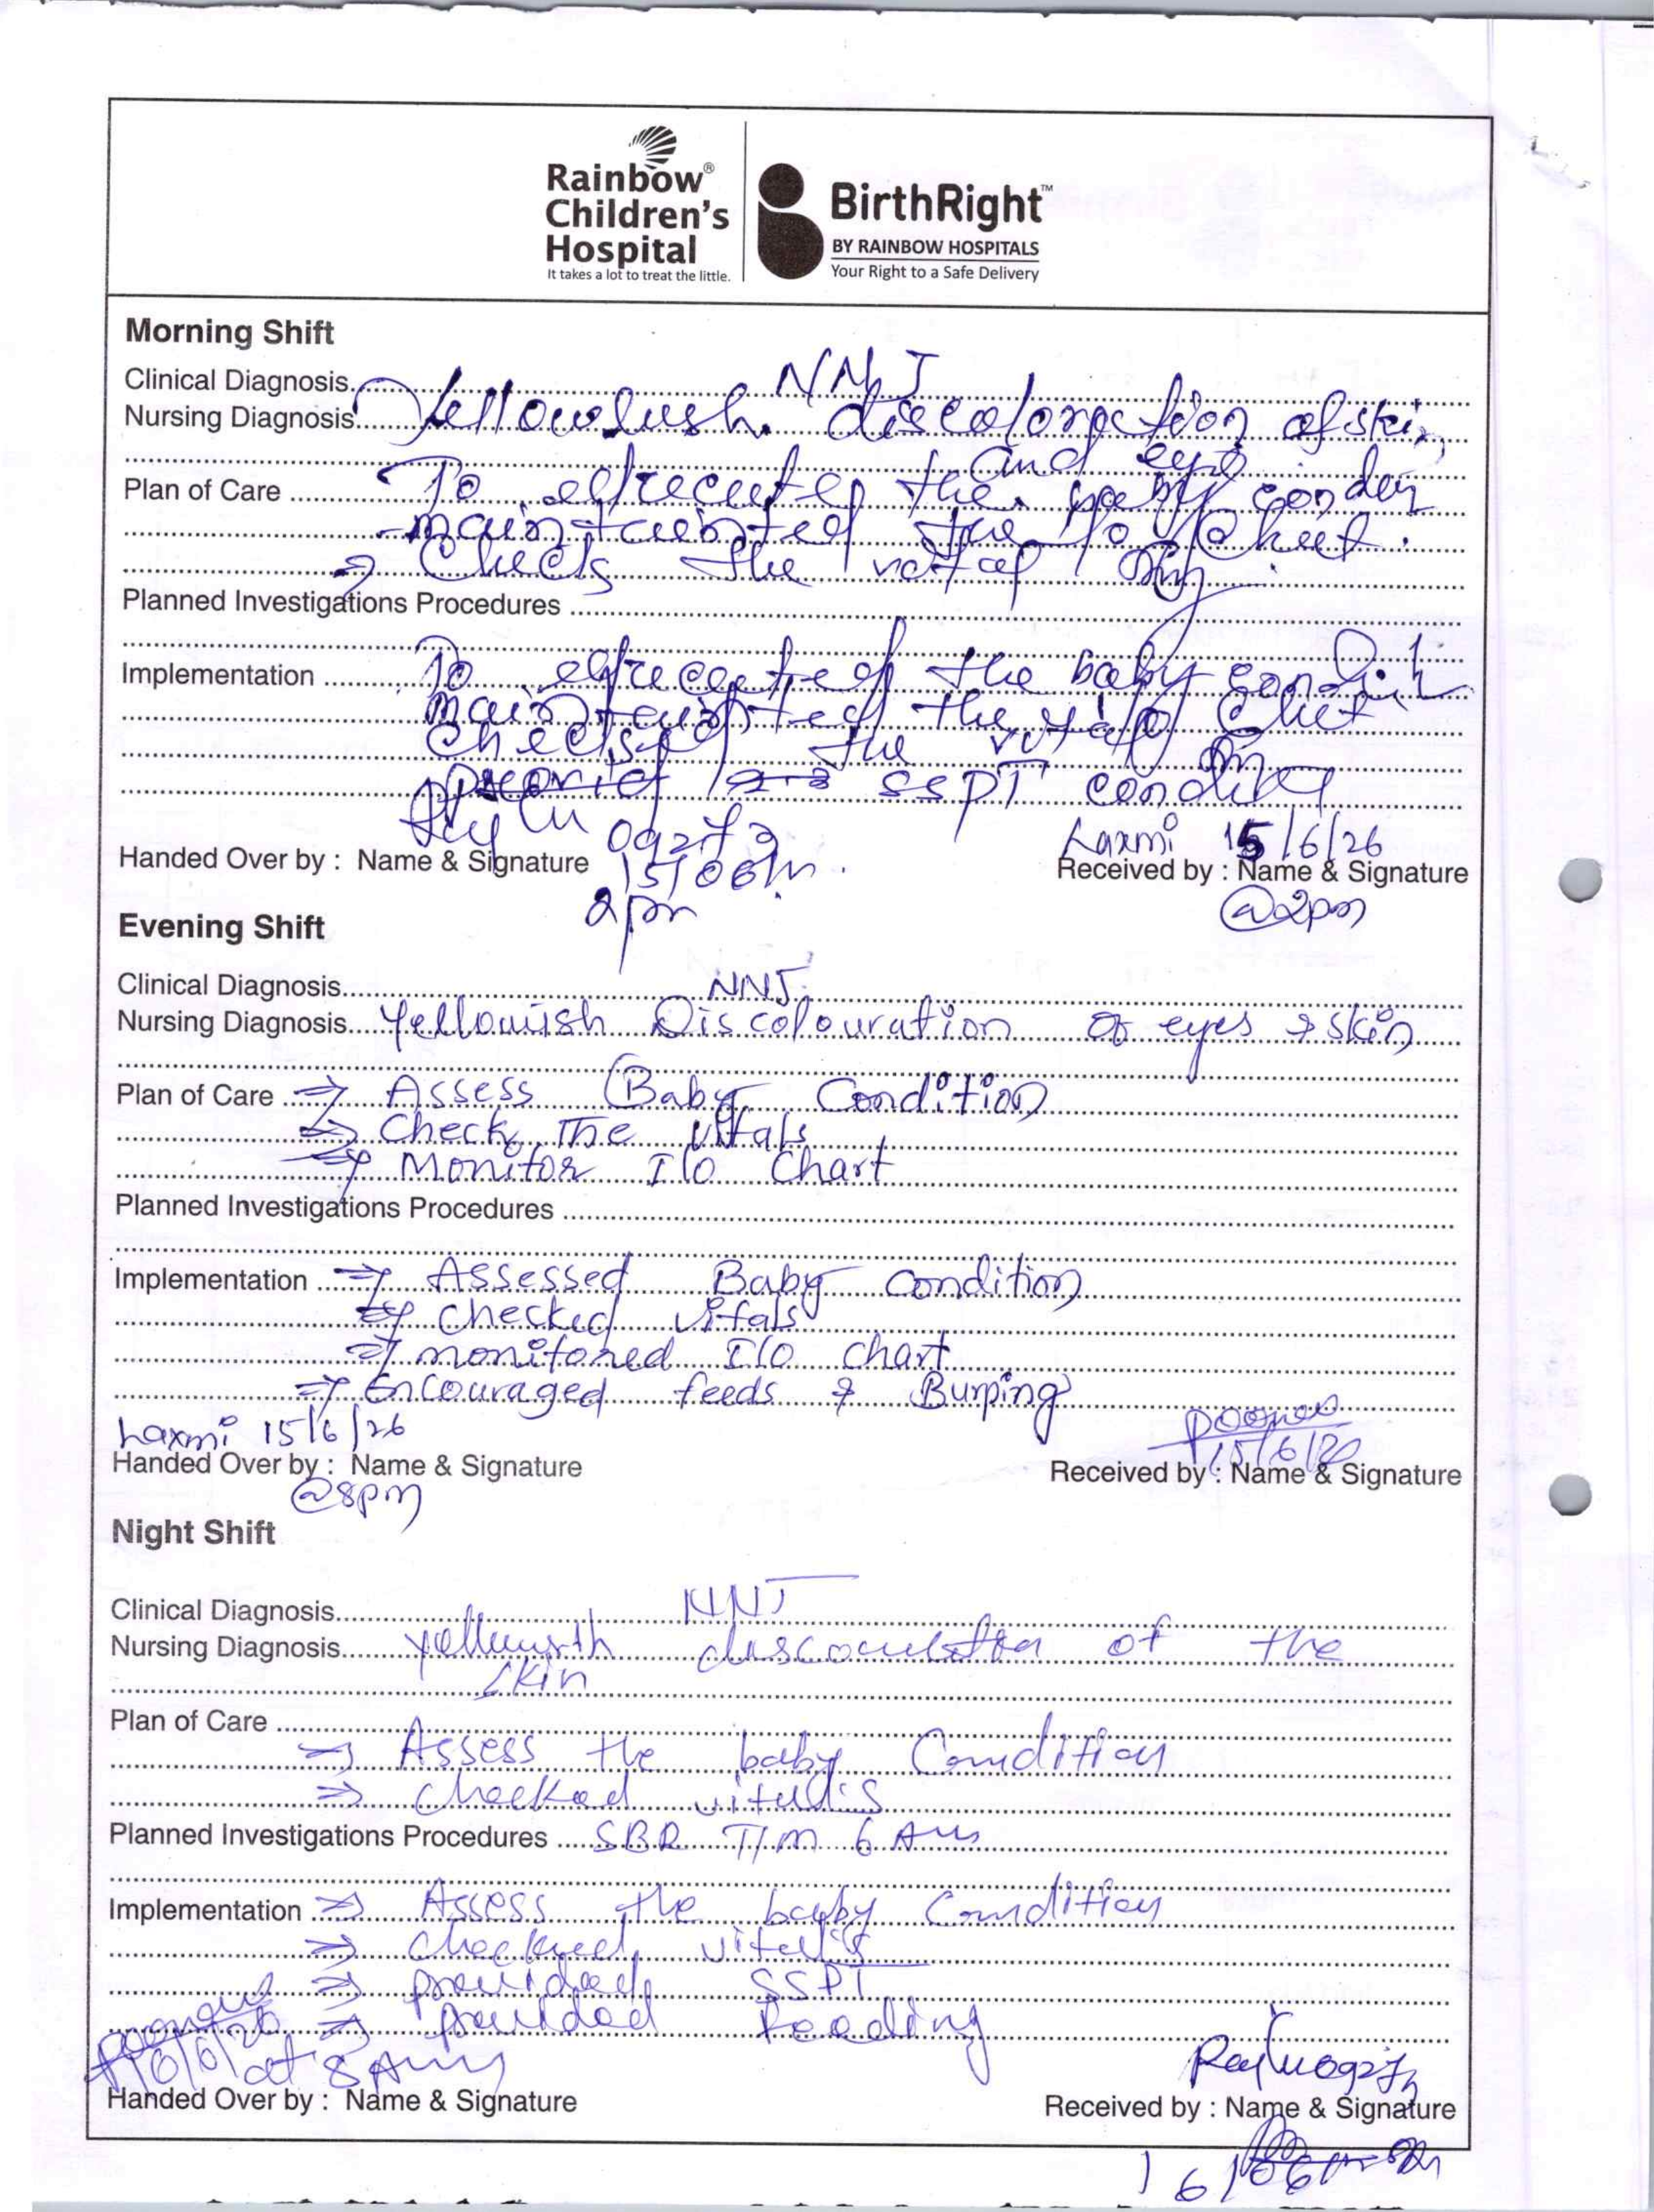 Rainbow®
Children's
Hospital
It takes a lot to treat the little.
BirthRight™
BY RAINBOW HOSPITALS
Your Right to a Safe Delivery
Morning Shift
Clinical Diagnosis NNJ
Nursing Diagnosis Yellowlush discoloraction of skin
and eye
Plan of Care To the baby
the I/O Chat.
⇒ Check the vital
Planned Investigations Procedures
Implementation To the baby condit
the I/O Chat
the vital
SSPT
092772
Handed Over by : Name & Signature 15/06/
2pm
Laxmi 15/6/26
Received by : Name & Signature
@2pm
Evening Shift
Clinical Diagnosis NNJ
Nursing Diagnosis Yellowish Discolouration of eyes & skin
Plan of Care ⇒ Assess Baby Condition
⇒ Check The vitals
⇒ Monitor I/O Chart
Planned Investigations Procedures
Implementation ⇒ Assessed Baby condition
⇒ checked vitals
⇒ monitored I/O chart
⇒ Encouraged feeds & Burping
Laxmi 15/6/26
Handed Over by : Name & Signature
@8pm
15/6/26
Received by : Name & Signature
Night Shift
Clinical Diagnosis NNJ
Nursing Diagnosis of the
skin
Plan of Care
⇒ Assess the baby Condition
⇒ checked vitals
Planned Investigations Procedures SBR T/m 6 Am
Implementation ⇒ Assess the baby Condition
⇒ checked vitals
⇒ provided SSPT
⇒ provided Feeding
16/6/26 at 8 Am
Handed Over by : Name & Signature
Received by : Name & Signature